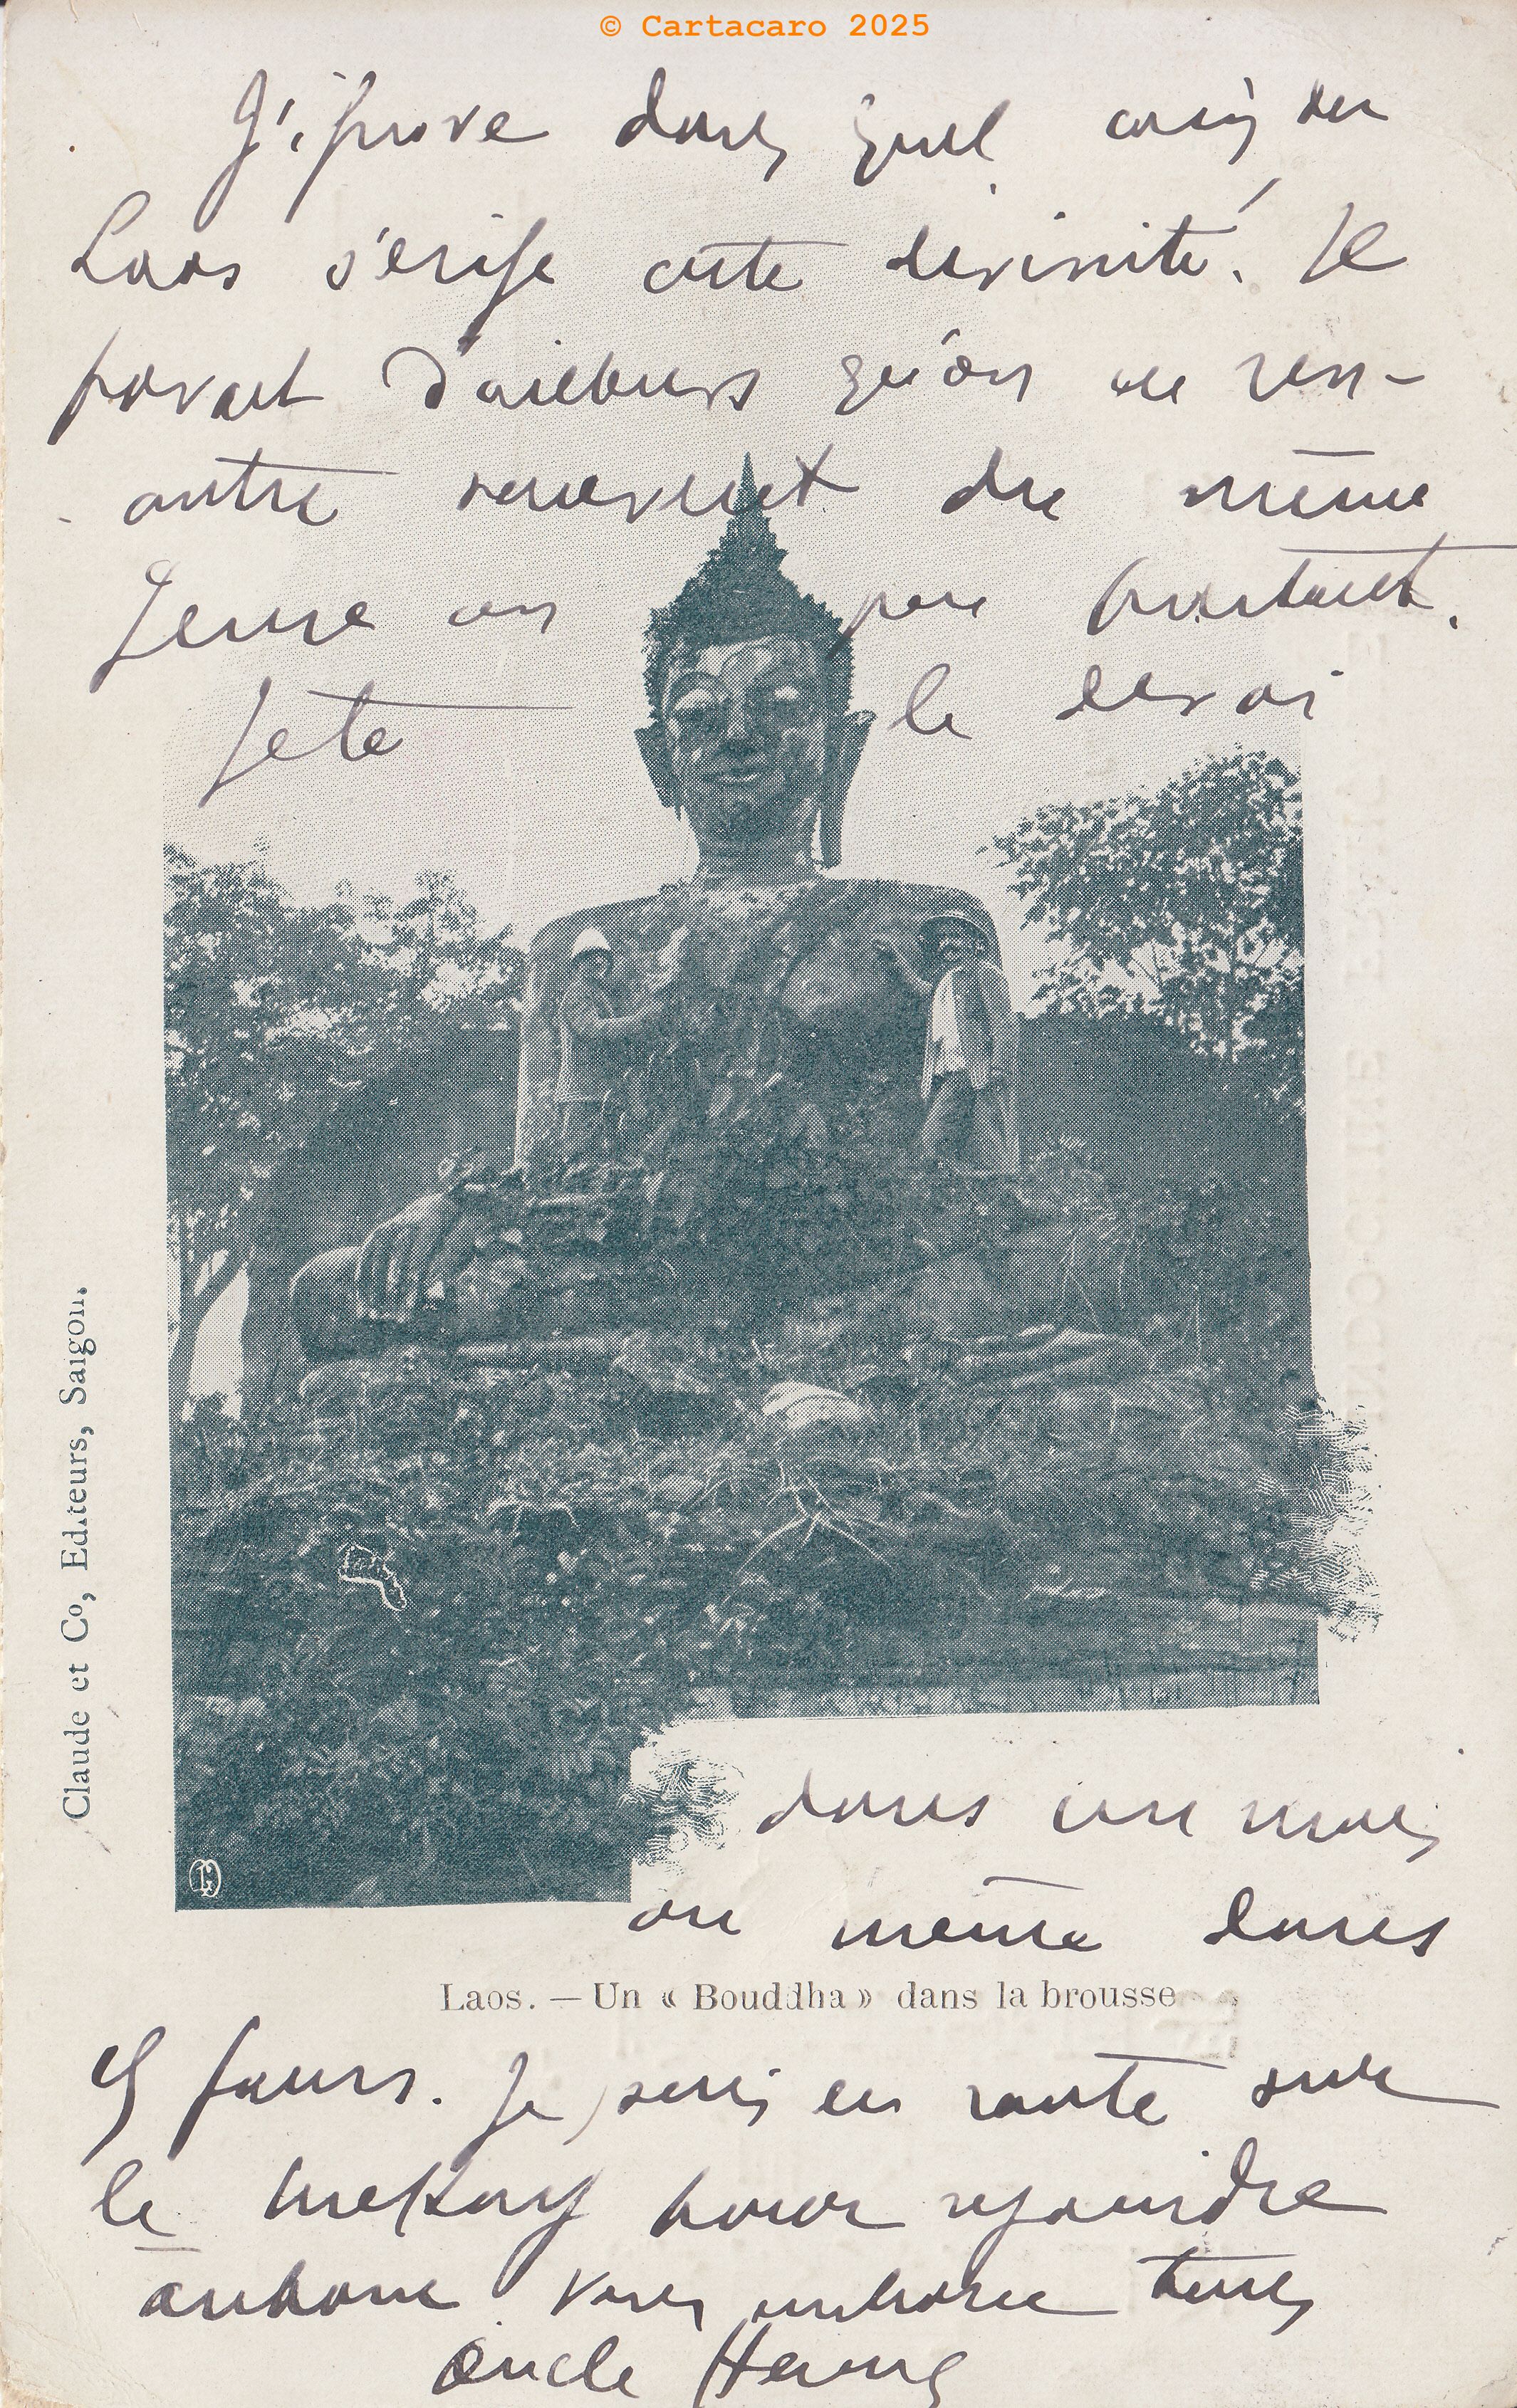 © Cartacaro 2025
J'ignore dans quel coin du
Laos s'érige cette divinité. Il
parait d'ailleurs qu'on en ren-
contre souvent du même
genre un peu partout.
Je te le dirai
dans un mois
ou même dans
Laos. — Un « Bouddha » dans la brousse
jours. Je suis en route sur
le Mekong pour rejoindre
Vous embrasse tous
Oncle
Claude et Co, Editeurs, Saigon.